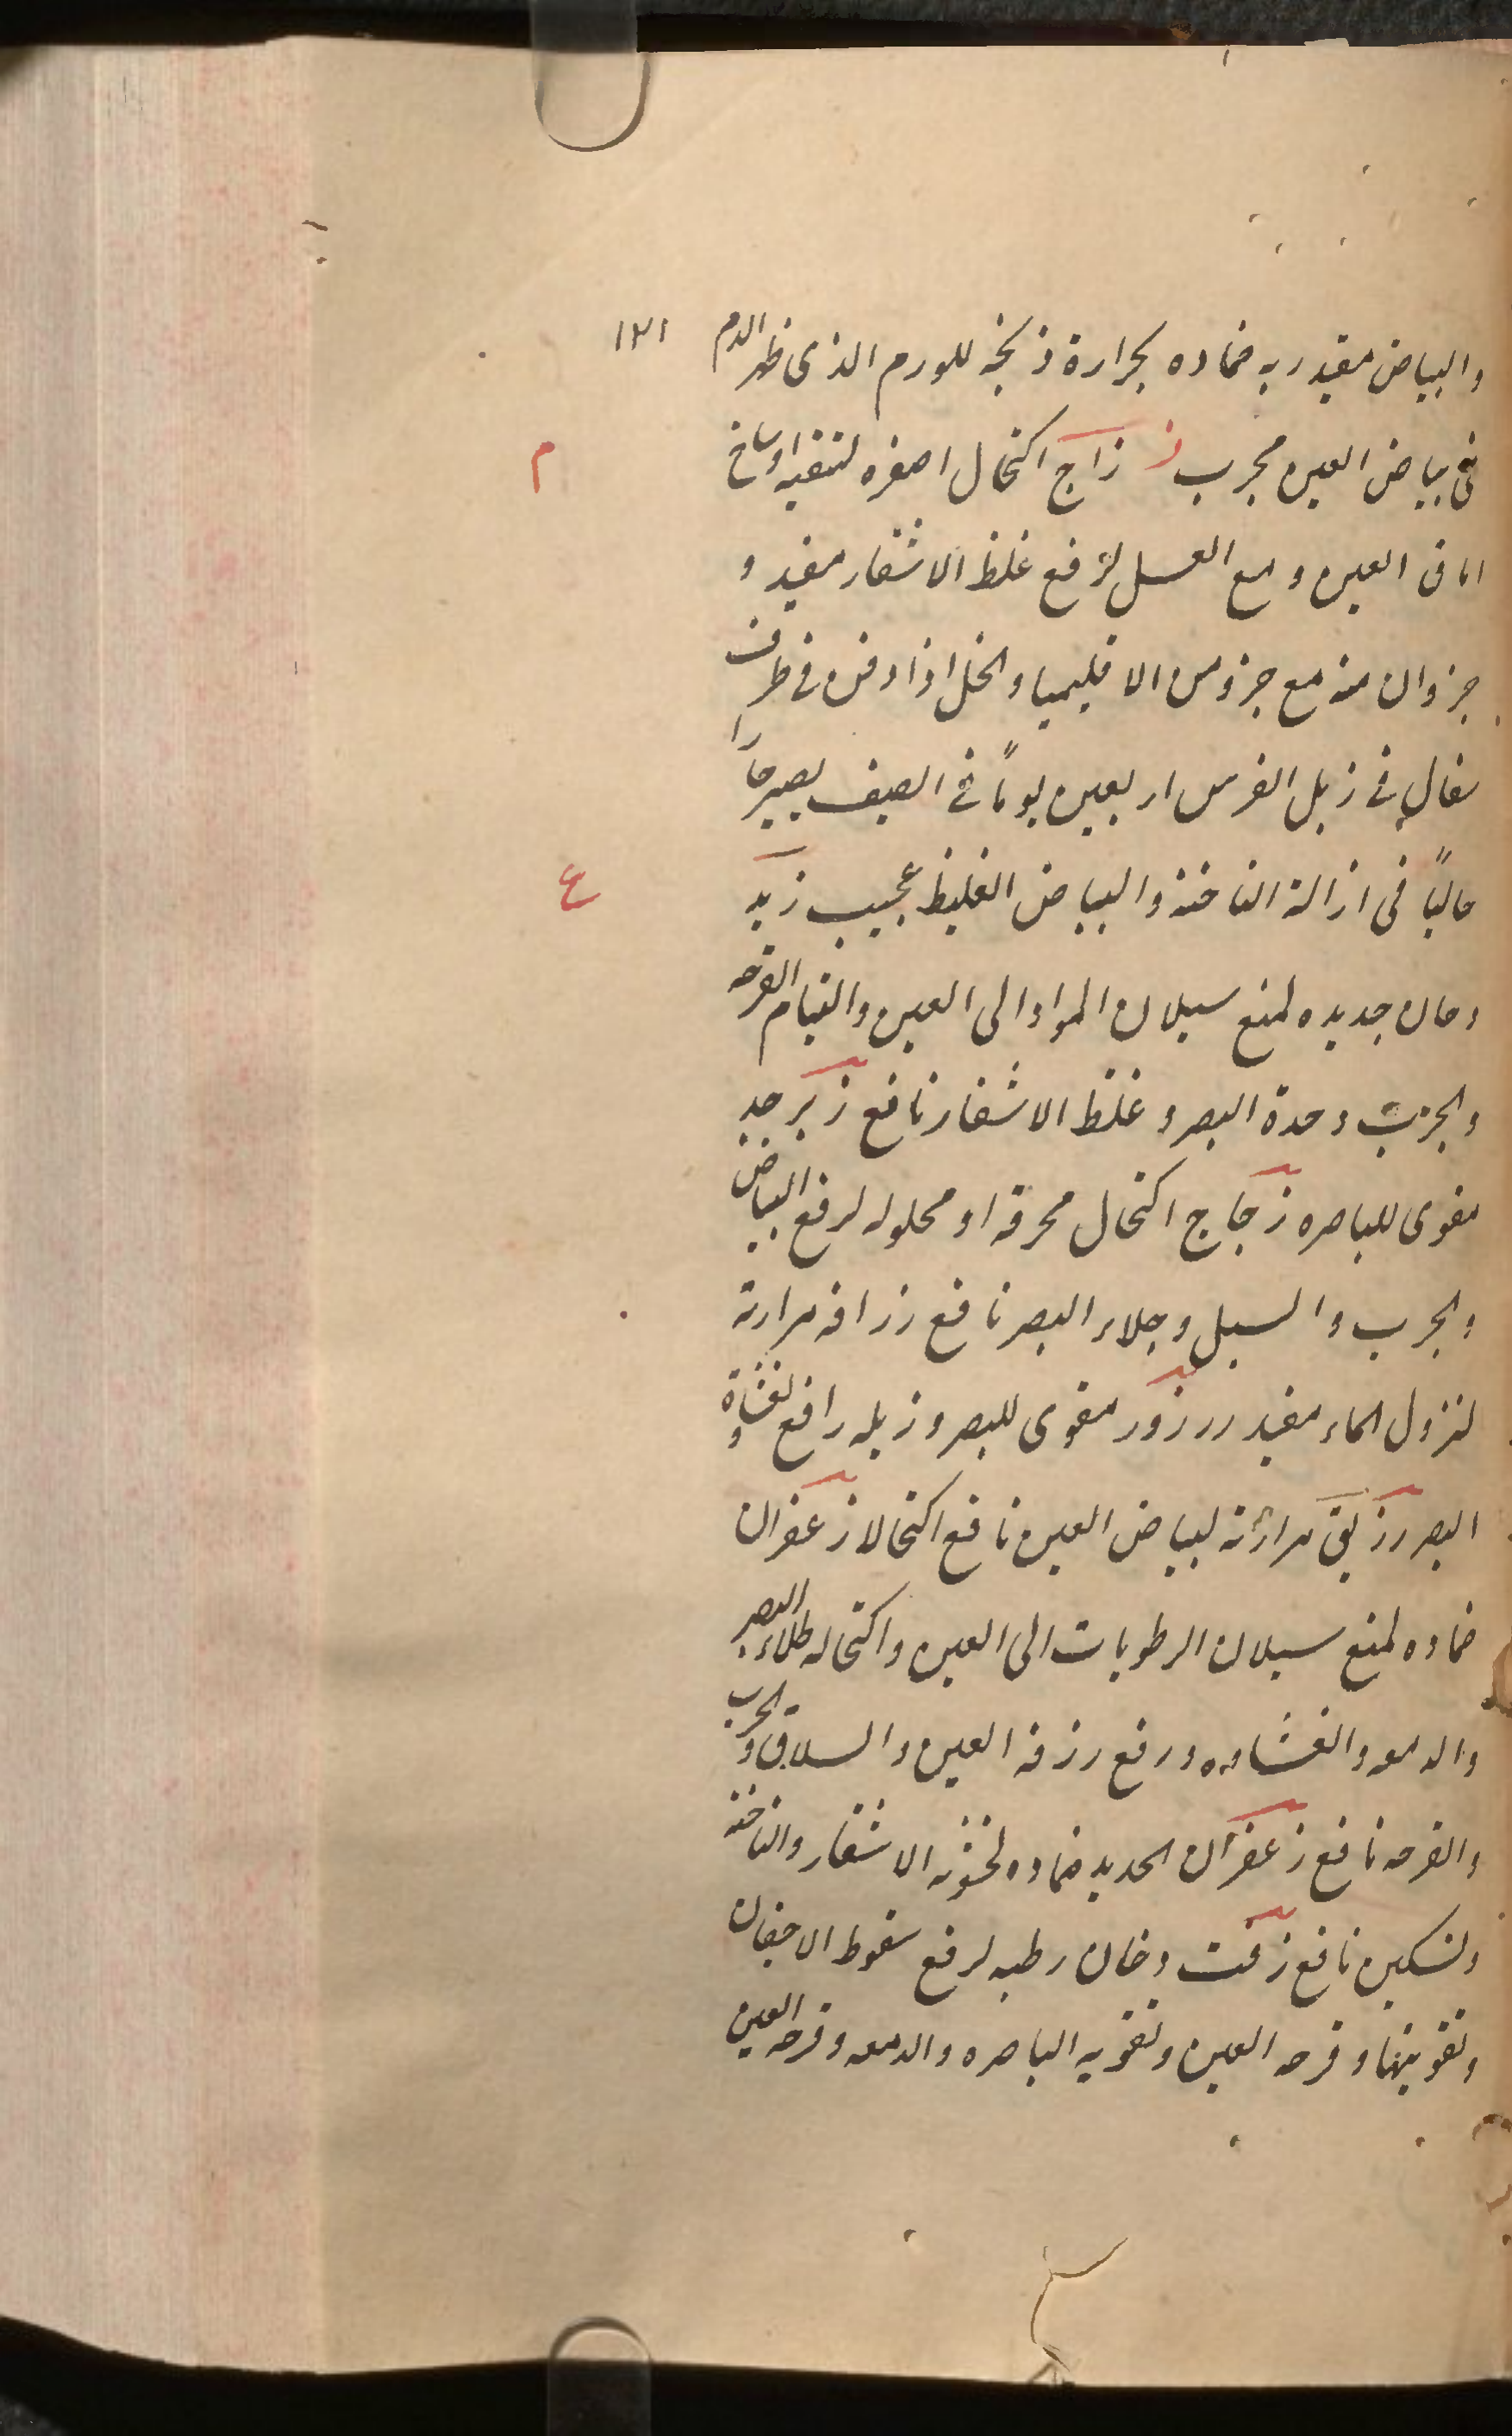 والبياض مفيد ربه ضماده بحرارة ذبحه للورم الذی ظهر الدم
١٢١
فی بياض العين مجرب ز زاج اكتحال اصفره لتنقيه اوساخ
م
اماق العين و مع العسل لرفع غلظ الاشفار مفيد و
جزوان منه مع جزو من الاقليميا والخل اذا دفن فی ظرف
سفال فی زبل الفرس اربعين يوماً فی الصيف يصير حاراً
حالباً فی ازالة الناخنة والبياض الغليظ عجيب زبد
ع
دخان جديده لمنع سيلان المواد الی العين والتيام القرحه
والجرب وحدة البصر و غلظ الاشفار نافع زبرجد
مقوی للباصره زجاج اكتحال محرقه او محلوله لرفع البياض
والجرب والسبل وجلاء البصر نافع زرافه مرارته
لنزول الماء مفيد زرزور مقوی للبصر و زبله رافع لغشاوة
البصر زريق مرارته لبياض العين نافع اكتحالا زعفران
ضماده لمنع سيلان الرطوبات الی العين واكتحاله لجلاء البصر
والدمعه والغشاوه ورفع زرقه العين والسلاق والجرب
والقرحه نافع زعفران الحديد ضماده لخشونه الاشفار والناخنه
وتسكين نافع زفت دخان رطبه لرفع سقوط الاجفان
وتقويتها و قرحه العين وتقويه الباصره والدمعه و قرحه العين